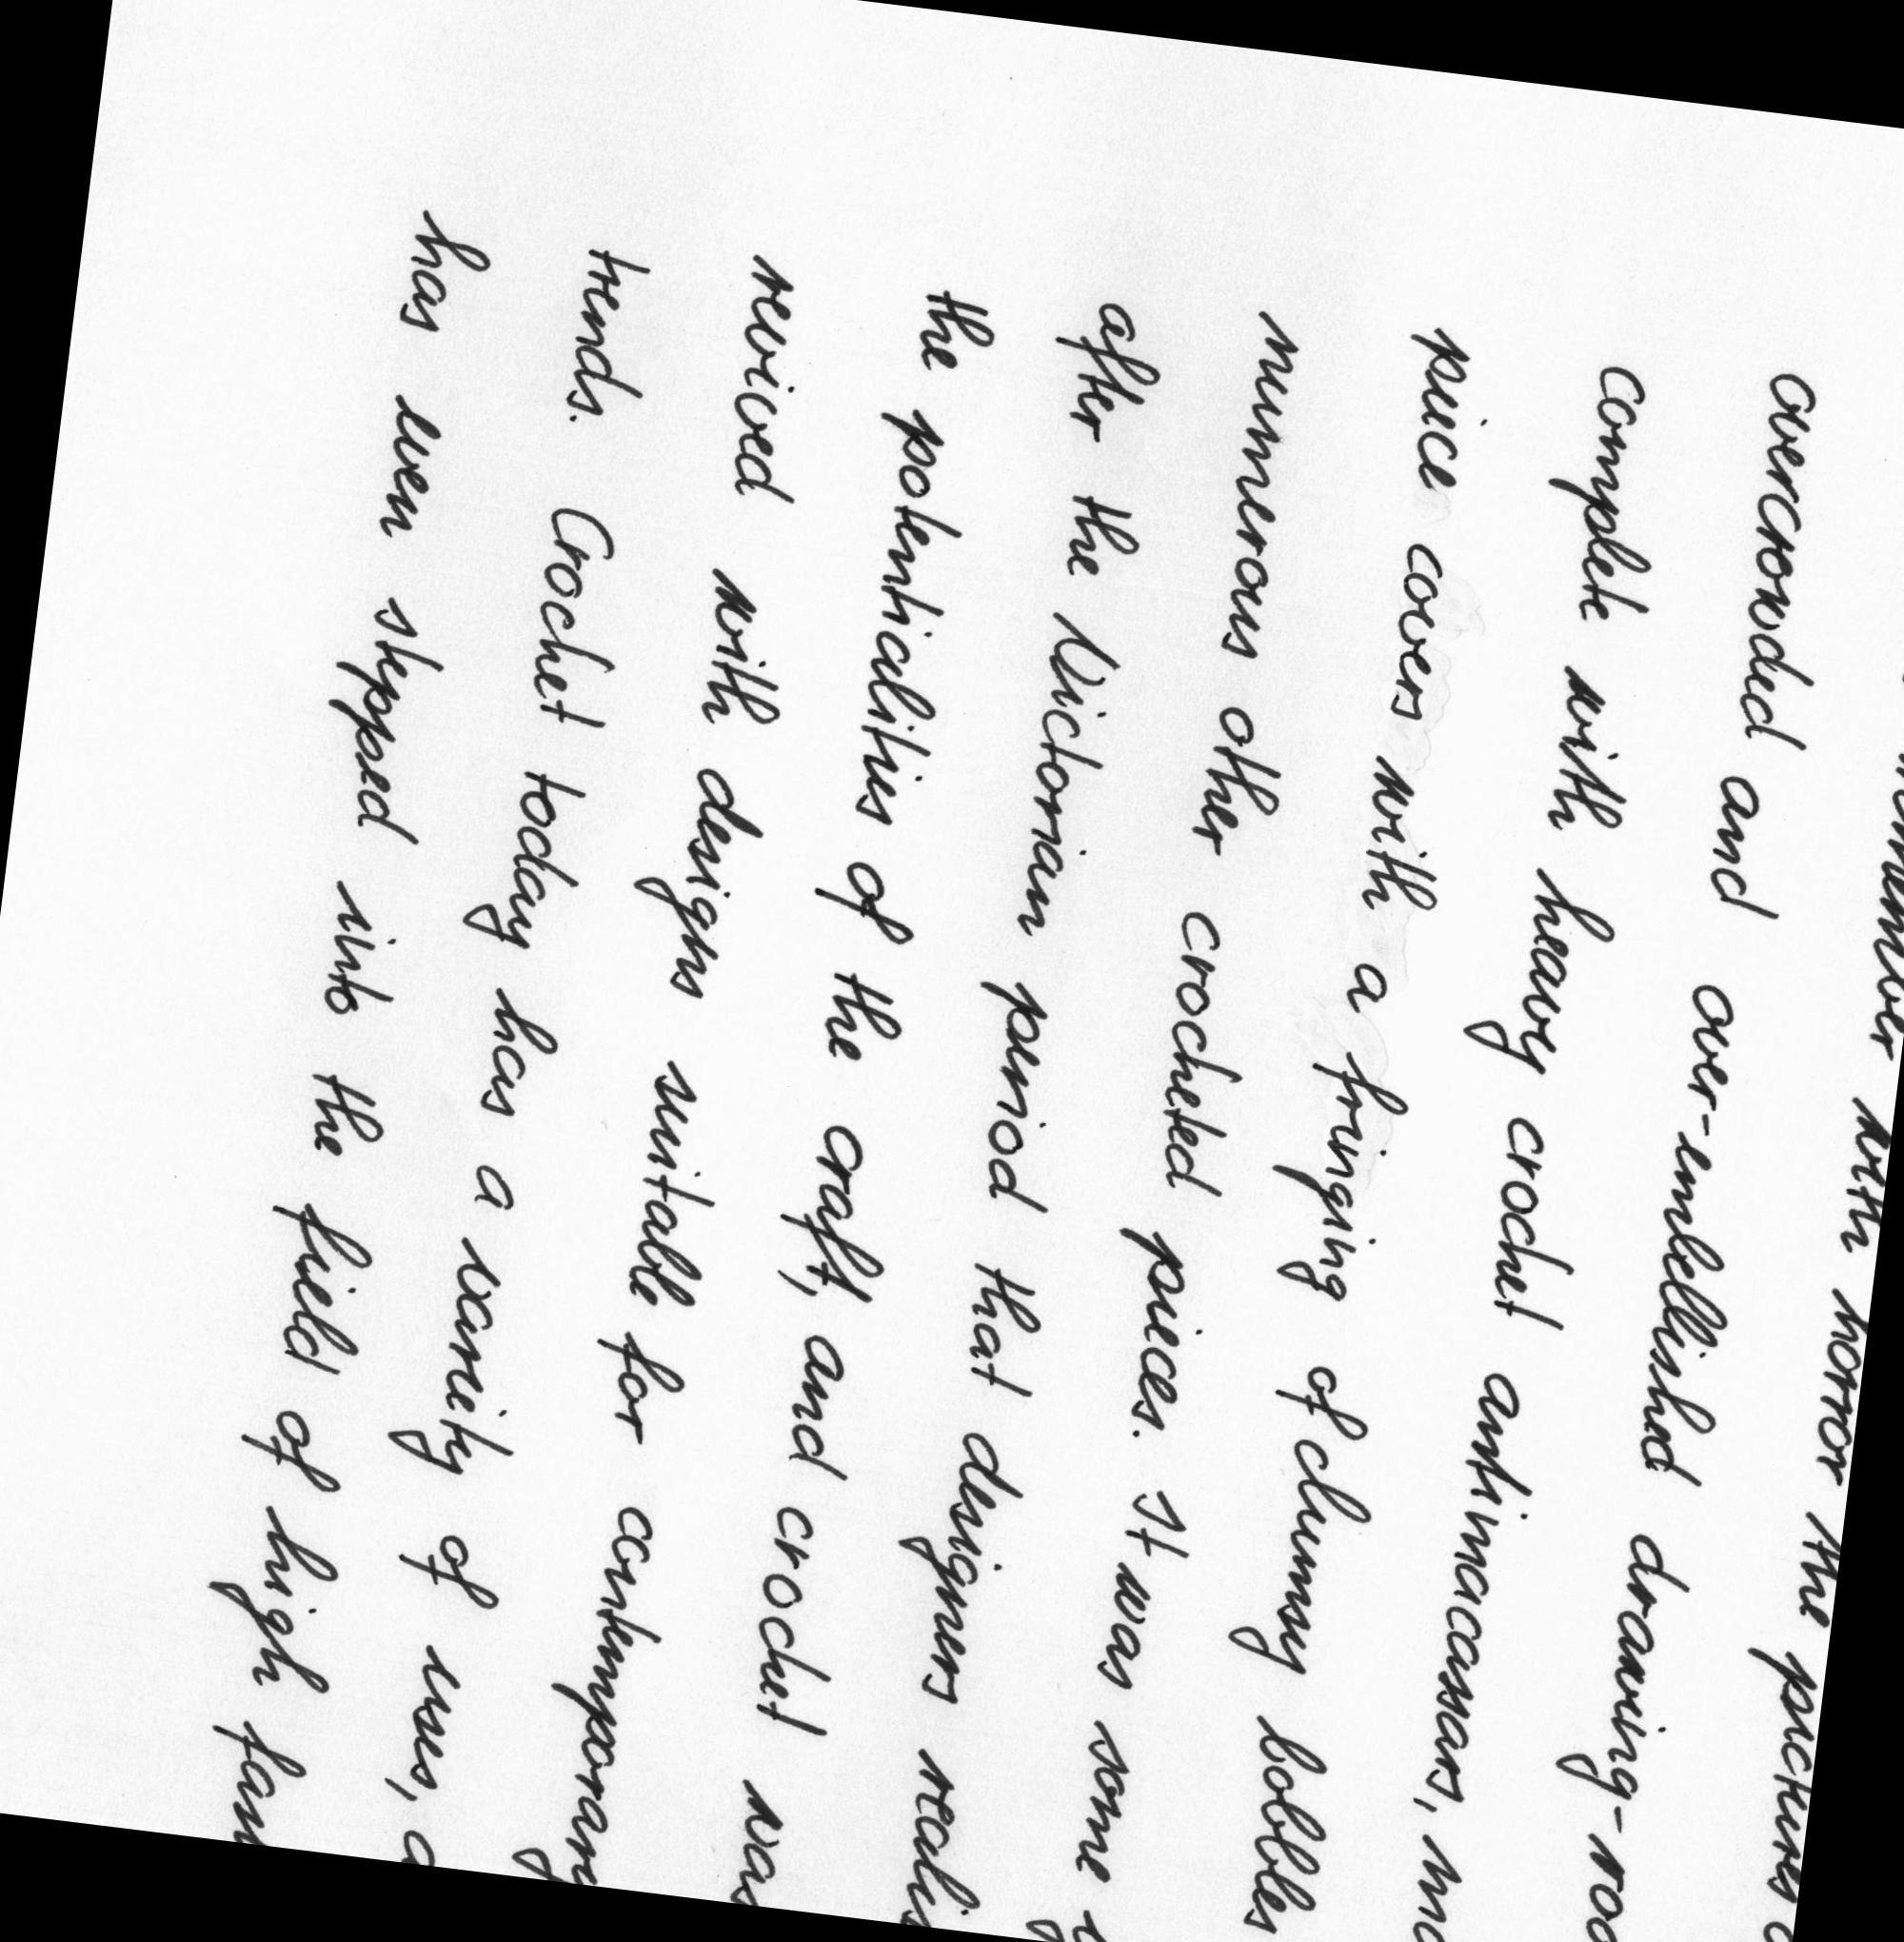 with horror the pictures
overcrowded and over-embellished drawing-roo
complete with heavy crochet antimacassars,
piece covers with a fringing of clumsy bobbles
numerous other crocheted pieces. It was some
after the Victorian period that designers realis
the potentialities of the craft, and crochet was
revived with designs suitable for contemporary
trends. Crochet today has a variety of uses,
has even stepped into the field of high